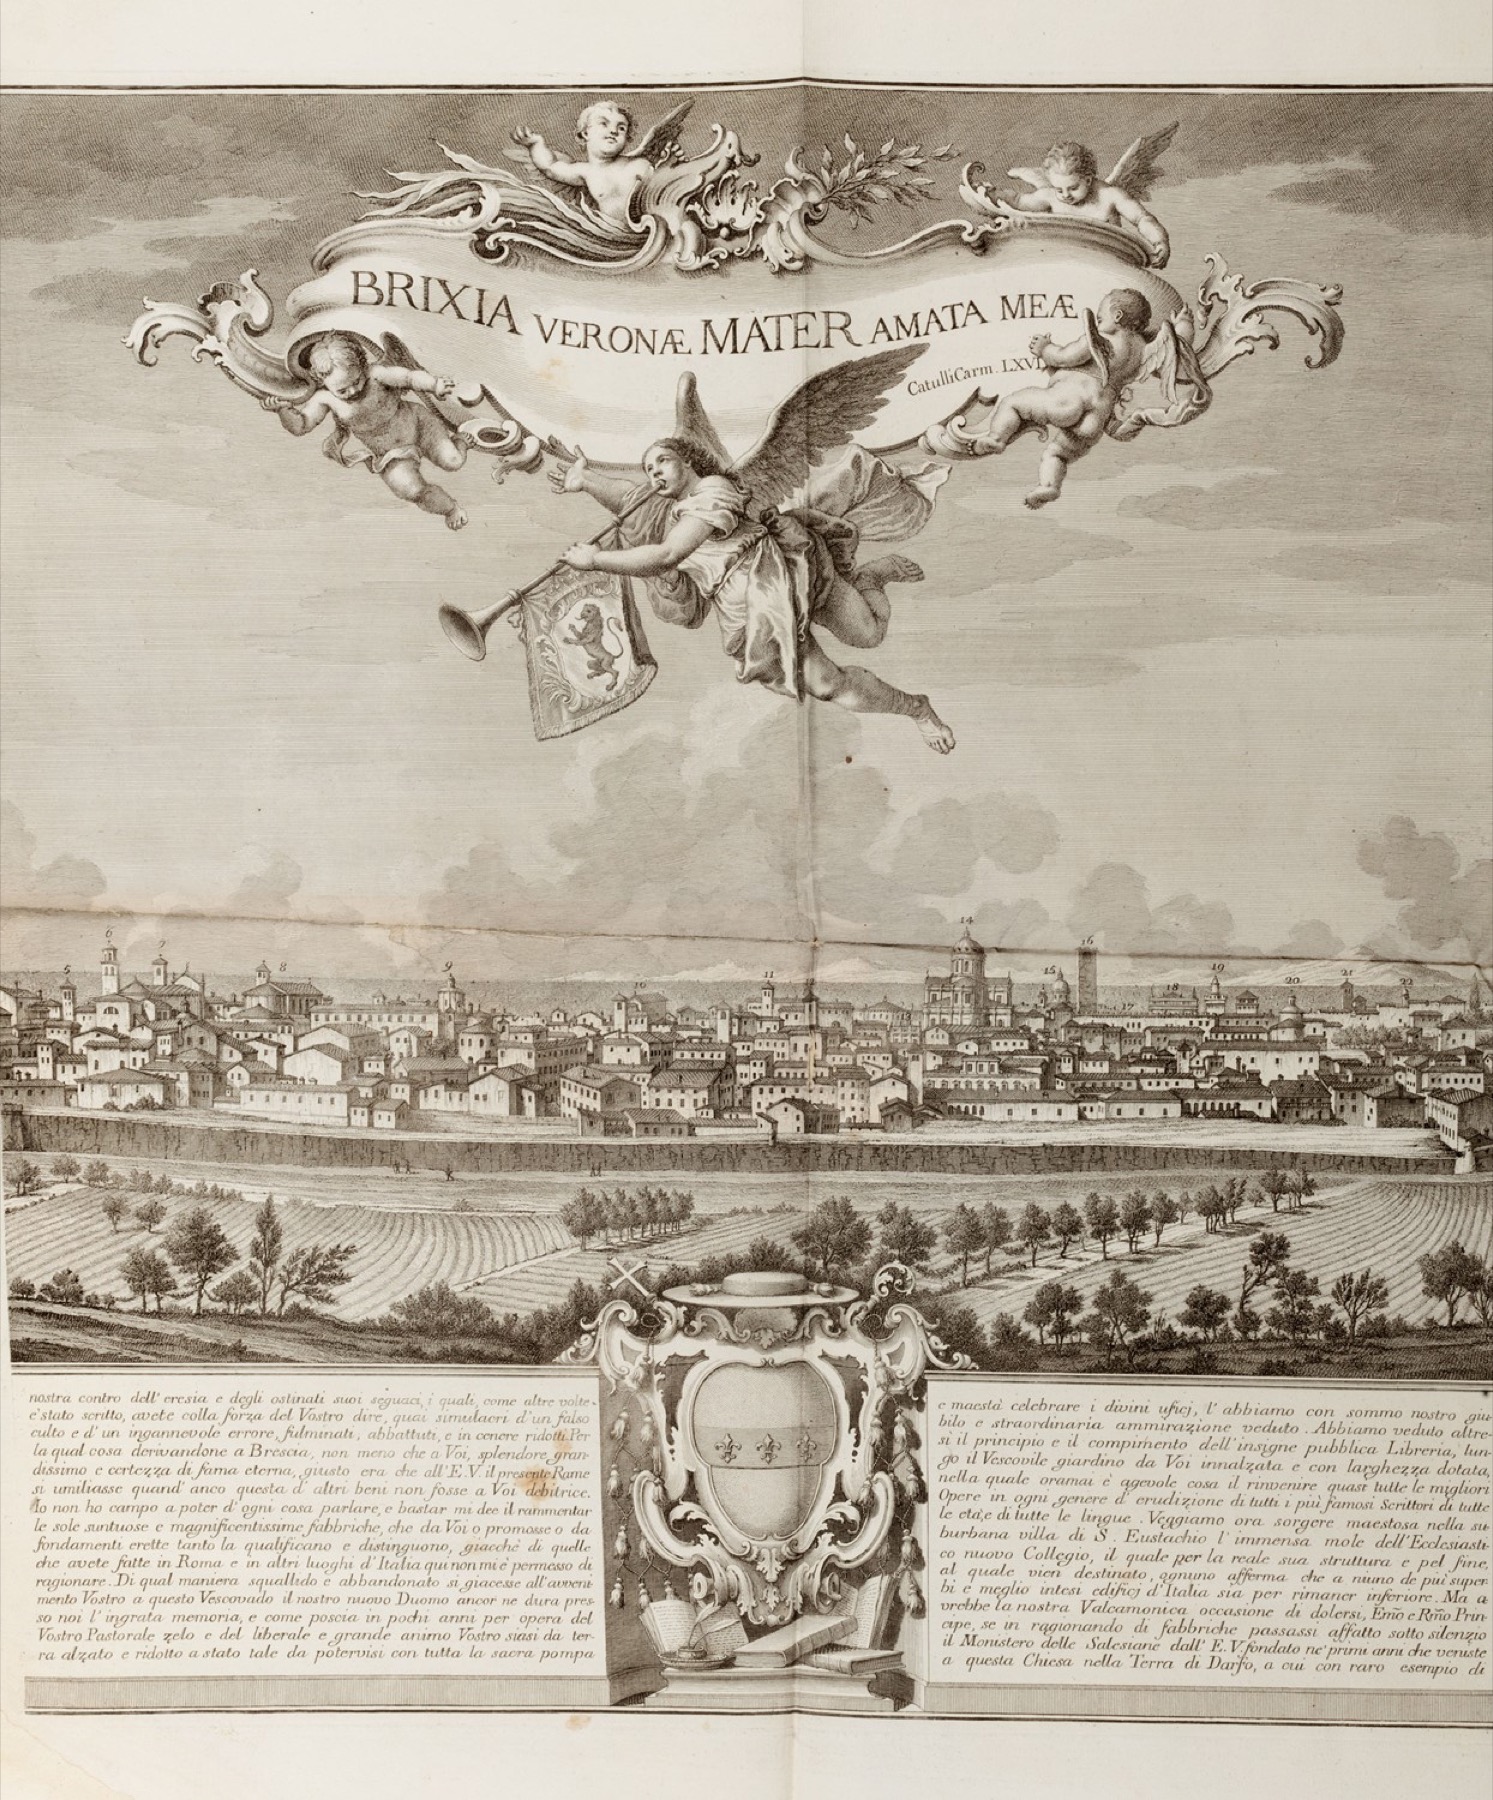 BRIXIA VERONÆ MATER AMATA MEÆ
Catulli Carm. LXVI
5
6
7
8
9
10
11
14
15
16
17
18
19
20
21
22
nostra contro dell' eresia e degli ostinati suoi seguaci, i quali, come altre volte
e' stato scritto, avete colla forza del Vostro dire, quai simulacri d'un falso
culto e d' un ingannevole errore, fulminati, abbattuti, e in cenere ridotti. Per
la qual cosa derivandone a Brescia, non meno che a Voi, splendore gran-
dissimo e certezza di fama eterna, giusto era che all' E.V. il presente Rame
si umiliasse quand' anco questa d' altri beni non fosse a Voi debitrice.
Io non ho campo a poter d' ogni cosa parlare, e bastar mi dee il rammentar
le sole suntuose e magnificentissime fabbriche, che da Voi o promosse o da
fondamenti erette tanto la qualificano e distinguono, giacchè di quelle
che avete fatte in Roma e in altri luoghi d' Italia qui non mi è permesso di
ragionare. Di qual maniera squallido e abbandonato si giacesse all' avveni-
mento Vostro a questo Vescovado il nostro nuovo Duomo ancor ne dura pres-
so noi l' ingrata memoria, e come poscia in pochi anni per opera del
Vostro Pastorale zelo e del liberale e grande animo Vostro siasi da ter-
ra alzato e ridotto a stato tale da potervisi con tutta la sacra pompa
e maestà celebrare i divini uficj, l' abbiamo con sommo nostro giu-
bilo e straordinaria ammirazione veduto. Abbiamo veduto altre-
si il principio e il compimento dell' insigne pubblica Libreria, lun-
go il Vescovile giardino da Voi innalzata e con larghezza dotata,
nella quale oramai è agevole cosa il rinvenire quasi tutte le migliori
Opere in ogni genere d' erudizione di tutti i più famosi Scrittori di tutte
le età, e di tutte le lingue. Veggiamo ora sorgere maestosa nella su-
burbana villa di S. Eustachio l' immensa mole dell' Ecclesiasti-
co nuovo Collegio, il quale per la reale sua struttura e pel fine,
al quale vien destinato, ognuno afferma che a niuno de più super-
bi e meglio intesi edificj d' Italia sia per rimaner inferiore. Ma a
vrebbe la nostra Valcamonica occasione di dolersi, Emo e Rmo Prin-
cipe, se in ragionando di fabbriche passassi affatto sotto silenzio
il Monistero delle Salesiane dall' E.V. fondato ne' primi anni che veniste
a questa Chiesa nella Terra di Darfo, a cui con raro esempio di